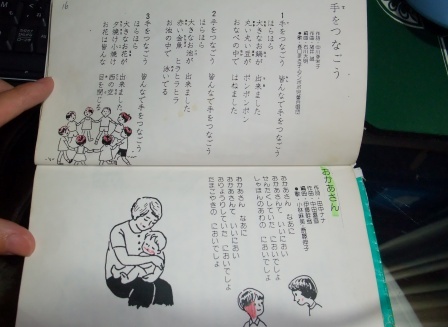 手をつなごう
1
手をつなごう 皆んなで手をつなごう
ほらほら
大きなお鍋が 出来ました
丸い丸い豆が ポンポンポン
おなべの中で はねました
2
手をつなごう 皆んなで手をつなごう
ほらほら
大きなお池が 出来ました
赤い金魚 ヒラヒラヒラ
お池の中で 泳いでる
3
手をつなごう 皆んなで手をつなごう
ほらほら
大きなお花が 出来ました
夕焼け小焼け 西の空
お花は皆んな 目を閉じた
16
おかあさん
作詞・田中ナナ
作曲・中田喜直
おかあさん なあに
おかあさんて いいにおい
せんたくしていた においでしょ
しゃぼんのあわの においでしょ
おかあさん なあに
おかあさんて いいにおい
おりょうりしていた においでしょ
たまごやきの においでしょ